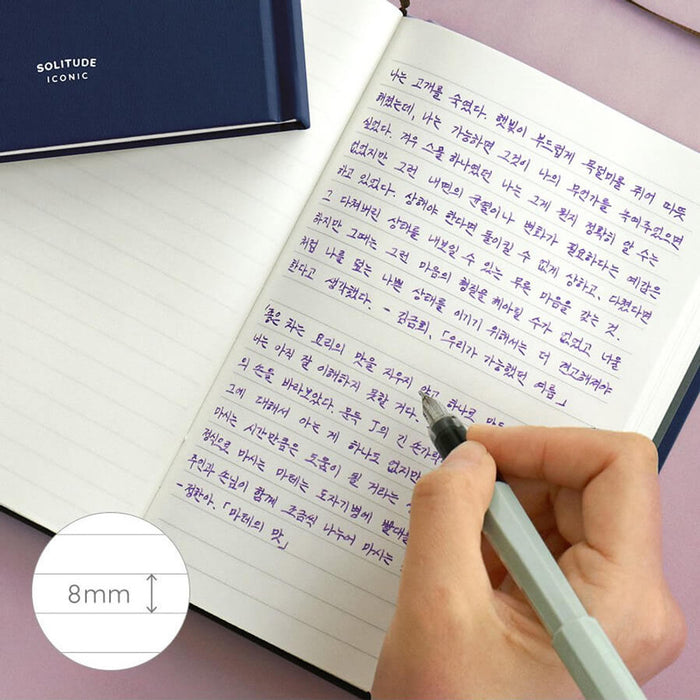 SOLITUDE
ICONIC
나는 고개를 숙였다. 햇빛이 부드럽게 목덜미를 쥐어 따뜻
해졌는데, 나는 가능하면 그것이 나의 무언가를 녹여주었으면
싶었다. 겨우 스물하나였던 나는 그게 뭔지 정확히 알 수는
없었지만 그런 내면의 균열이나 변화가 필요하다는 예감은
하고 있었다. 상해야 한다면 돌이킬 수 없게 상하고, 다쳤다면
그 다쳐버린 상태를 내보일 수 있는 무른 마음을 갖는 것.
하지만 그때는 그런 마음의 형질을 헤아릴 수가 없었고 너울
처럼 나를 덮는 나쁜 상태를 이기기 위해서는 더 견고해져야
한다고 생각했다. - 김금희, 「우리가 가능했던 여름」
'좋은 차는 요리의 맛을 지우지 않고 하나로
나는 아직 잘 이해하지 못할 거다.
의 손을 바라보았다. 문득 J의 긴 손가
그에 대해서 아는 게 하나도 없지만
마시는 시간만큼은 도움이 될 거라는
정식으로 마시는 마테는 도자기병에 빨대를
주인과 손님이 함께 조금씩 나누어 마시는
- 정한아. 「마테의 맛」
8mm